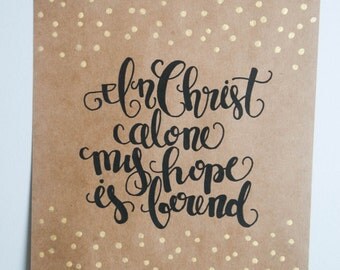 In Christ
alone
my hope
is found